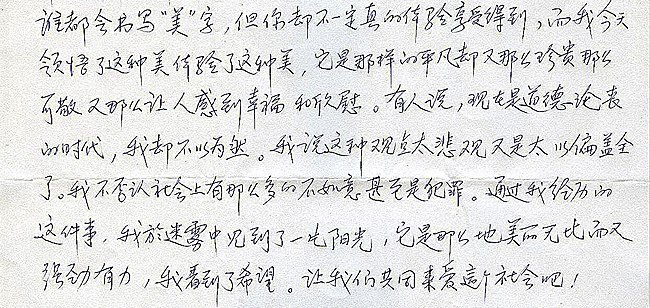 谁都会书写“美”字，但你却不一定真的体验享受得到，而我今天
领悟了这种美体验了这种美，它是那样的平凡却又那么珍贵那么
可敬又那么让人感到幸福和欣慰。有人说，现在是道德沦丧
的时代，我却不以为然。我说这种观点太悲观又是太以偏盖全
了。我不否认社会上有那么多的不如意甚至是犯罪。通过我经历的
这件事，我於迷雾中见到了一片阳光，它是那么地美丽无比而又
强劲有力，我看到了希望。让我们共同来爱這个社会吧！